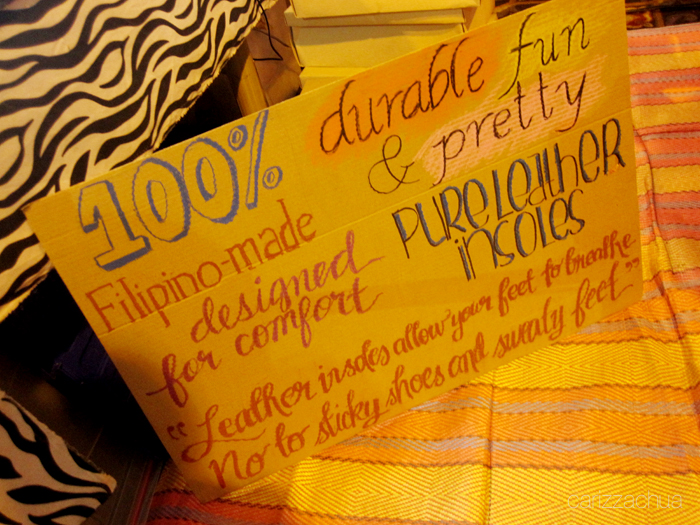 100%
Filipino-made
designed
for comfort
durable fun
& pretty
PURE LEATHER
insoles
"Leather insoles allow your feet to breathe.
No to sticky shoes and sweaty feet"
carizzachua